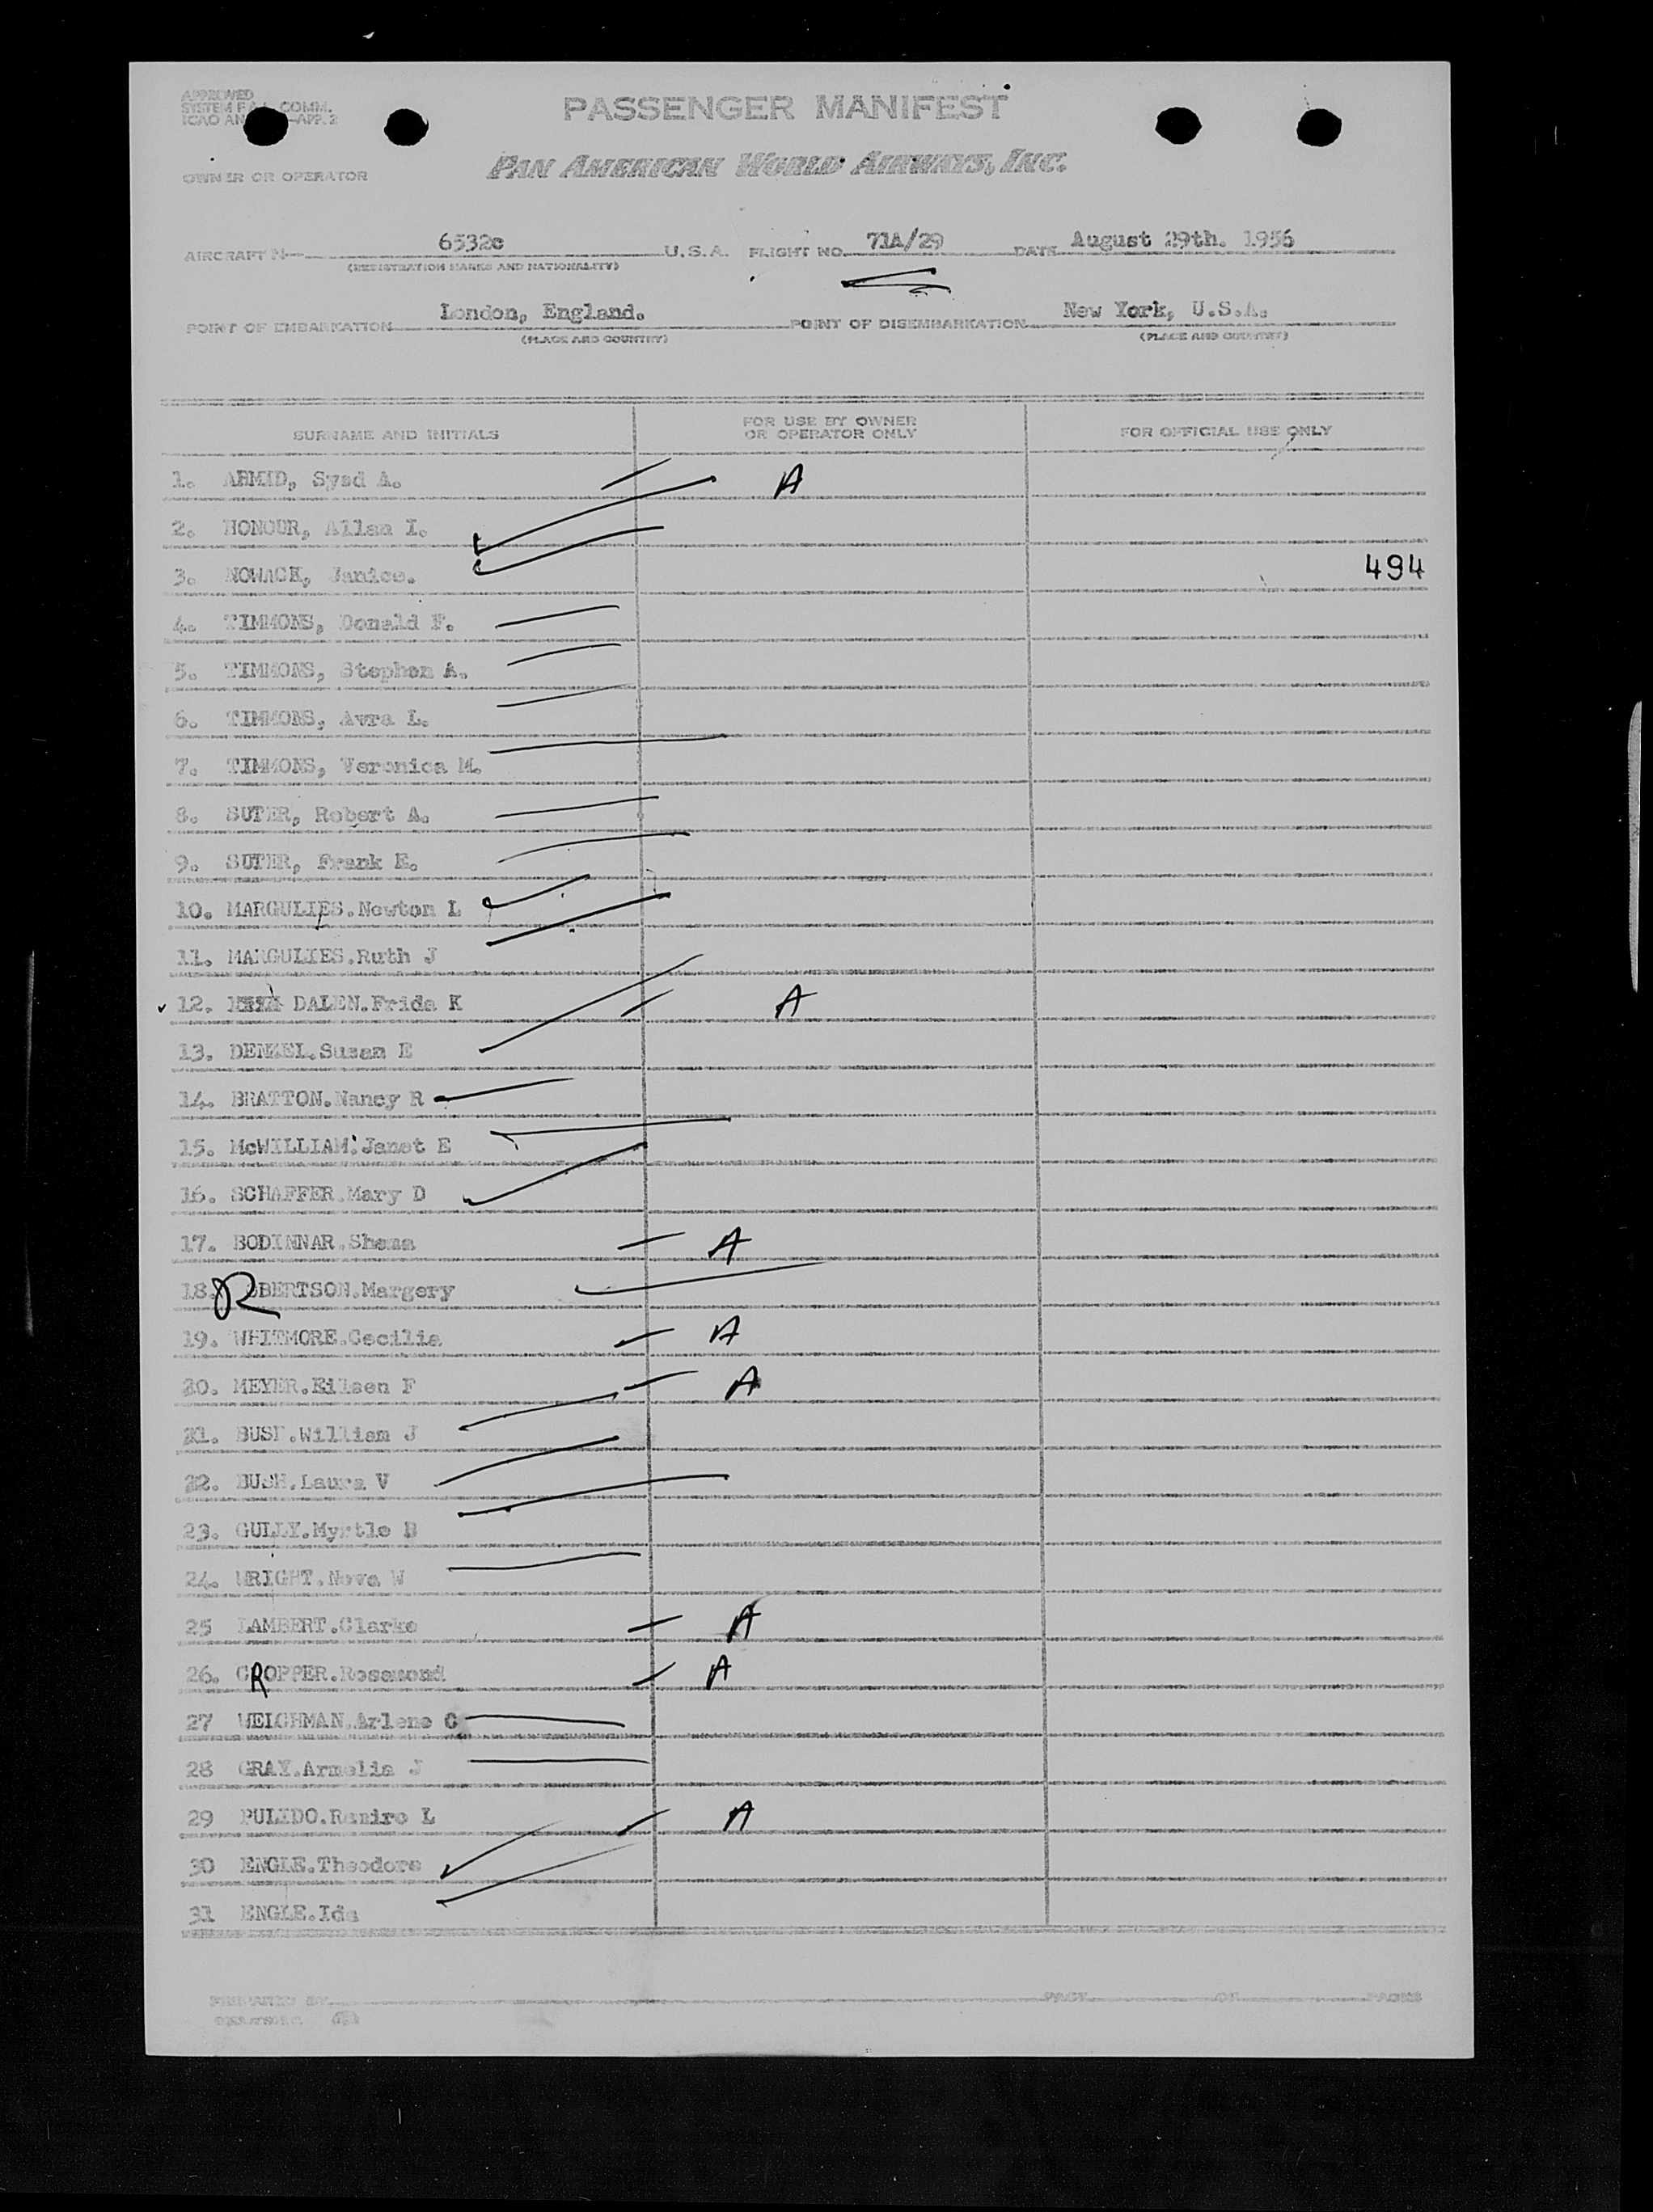 APPROVED
SYSTEM F.A.L. COMM.
ICAO AN -APP. 2
PASSENGER MANIFEST
OWNER OR OPERATOR
PAN AMERICAN WORLD AIRWAYS, INC.
AIRCRAFT N- 6532c U.S.A. FLIGHT NO. 71A/29 DATE August 29th. 1956
(REGISTRATION MARKS AND NATIONALITY)
POINT OF EMBARKATION London, England. POINT OF DISEMBARKATION New York, U.S.A.
(PLACE AND COUNTRY) (PLACE AND COUNTRY)
SURNAME AND INITIALS FOR USE BY OWNER OR OPERATOR ONLY FOR OFFICIAL USE ONLY
1. AHMID, Syed A. A
2. HONOUR, Allan I.
3. NOWACK, Janice. 494
4. TIMMONS, Donald F.
5. TIMMONS, Stephen A.
6. TIMMONS, Avra L.
7. TIMMONS, Veronica M.
8. SUTER, Robert A.
9. SUTER, Frank E.
10. MARGULIES.Newton L
11. MARGULIES.Ruth J
12. DALEN.Frida K A
13. DENZEL.Susan E
14. BRATTON.Nancy R
15. McWILLIAM.Janet E
16. SCHAFFER.Mary D
17. BODINNAR.Shena A
18. ROBERTSON.Margery
19. WHITMORE.Cecilia A
20. MEYER.Eileen F A
21. BUSH.William J
22. BUSH.Laura V
23. GULLY.Myrtle B
24. WRIGHT.Nova W
25 LAMBERT.Clarke A
26. CROPPER.Rosamond A
27 WEIGHMAN.Arlene C
28 GRAY.Armelia J
29 PULIDO.Ramiro L A
30 ENGLE.Theodore
31 ENGLE.Ida
PREPARED BY PAGE OF PAGES